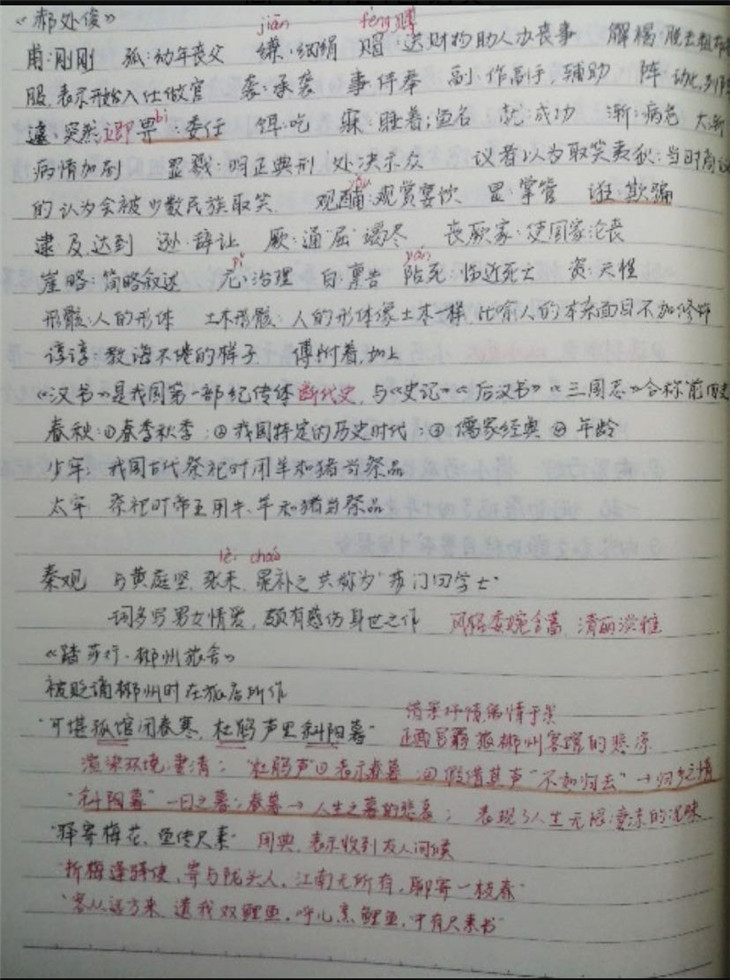 《郝处俊》
jiān fèng 赙
甫:刚刚 孤:幼年丧父 缣:细绢 赗:送财物助人办丧事 解褐:脱去粗布
服,表示开始入仕做官 袭:承袭 事:侍奉 副:作副手,辅助 阵:动化,列阵
遽:突然,立即 畀bì:委任 饵:吃 寐:睡着 就:成功 渐:病危 大渐
病情加剧 显戮:明正典刑 处决示众 议者以为取笑夷狄:当时商议
的认为会被少数民族取笑 观酺pú:观赏宴饮 显:掌管 诳:欺骗
逮:及,达到 逊:辞让 厥:通"屈"竭尽 丧厥家:使国家沦丧
崖略:简略叙述 白:禀告 阽diàn死:临近死亡 资:天性
形骸:人的形体 土木形骸:人的形体像土木一样,比喻人的本来面目不加修饰
谆谆:教诲不倦的样子 傅:附着,加上
《汉书》是我国第一部纪传体断代史,与《史记》《后汉书》《三国志》合称"前四史
春秋:①春季秋季;②我国特定的历史时代;③儒家经典 ④年龄
少牢:我国古代祭祀时用羊和猪当祭品
太牢:祭祀时帝王用牛、羊和猪当祭品
lěi cháo
秦观 与黄庭坚,张耒,晁补之共称为"苏门四学士"
词多写男女情爱,颇有感伤身世之作 风格委婉含蓄,清丽淡雅
《踏莎行·郴州旅舍》
被贬谪郴州时在旅店所作
"可堪孤馆闭春寒,杜鹃声里斜阳暮" 借景抒情,寓情于景
正面写羁旅郴州客馆的悲凉
渲染环境凄清; "杜鹃声"①表示春暮 ②假借其声"不如归去"→归乡之情
"斜阳暮"一日之暮;春暮→人生之暮的悲哀; 表现了人生无限凄凉的况味
"驿寄梅花,鱼传尺素" 用典,表示收到友人问候
"折梅逢驿使,寄与陇头人,江南无所有,聊寄一枝春"
"客从远方来,遗我双鲤鱼,呼儿烹鲤鱼,中有尺素书"